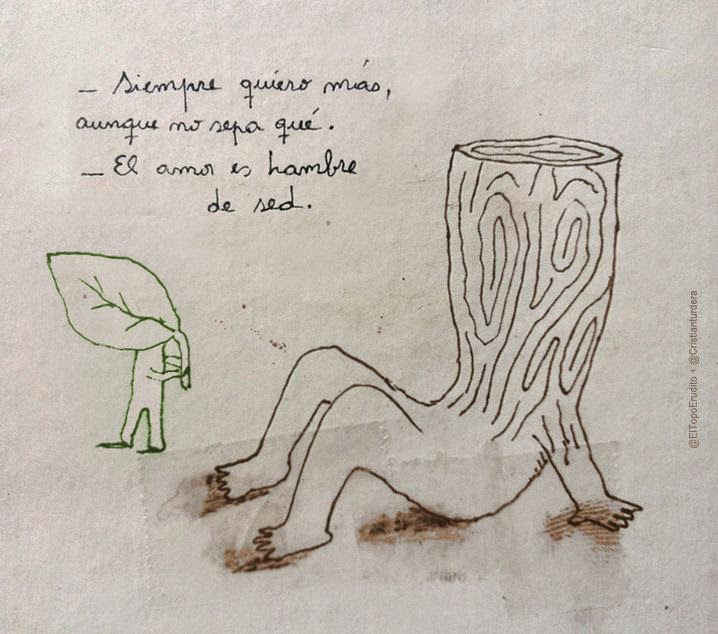 – Siempre quiero más,
aunque no sepa qué.
– El amor es hambre
de sed.
@ElTopoErudito + @Cristianturdera